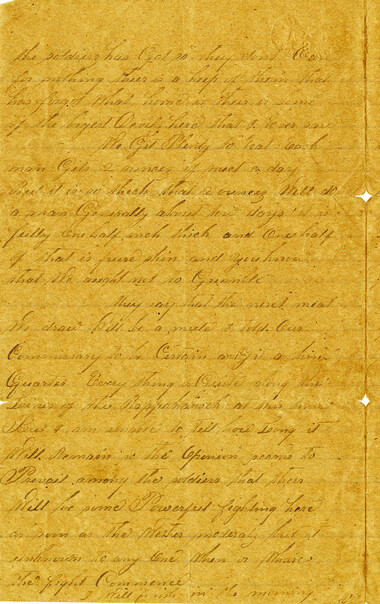 the soldiers has Got so they dont Care
for nothing their is a heep of them that
has forgot what home is their is some
of the bigest Devils here that I Ever saw
We Git Plenty to Eat Each
man Gets 2 ounces of meet a day
But it is so thick that 2 ounces Will do
a man Generally about ten days it is
fully one half inch thick and one half
of that is pure skin and you know
that We aught not to Grumble
they say that the next meat
We draw Will be a mule I told Our
Commissary to be Certain and Git a hind
Quarter Every thing is Quiet along the
Line of the Rappahanock at this time
I am unable to tell how Long it
Will Remain so the Openion seems to
Prevail among the soldiers that their
Will be some Powerful fighting here
as soon as the Wether moderate but
unknown to any One When or Where
the fight Commence
I Will in the morning